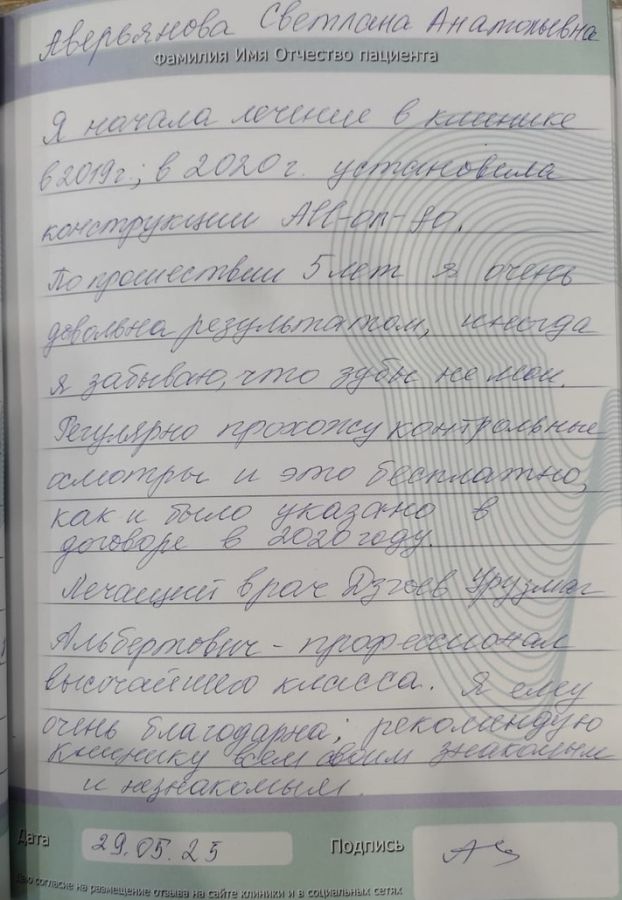 Аверьянова Светлана Анатольевна
Фамилия Имя Отчество пациента
Я начала лечение в клинике
в 2019г.; в 2020г. установила
конструкции All-on-4.
По прошествии 5 лет я очень
довольна результатом, иногда
я забываю, что зубы не мои.
Регулярно прохожу контрольные
осмотры и это бесплатно,
как и было указано в
договоре в 2020 году.
Лечащий врач Дзгоев Урузмаг
Альбертович - профессионал
высочайшего класса. Я ему
очень благодарна; рекомендую
клинику всем своим знакомым
и незнакомым.
Дата 29.05.25 Подпись
Даю согласие на размещение отзыва на сайте клиники и в социальных сетях